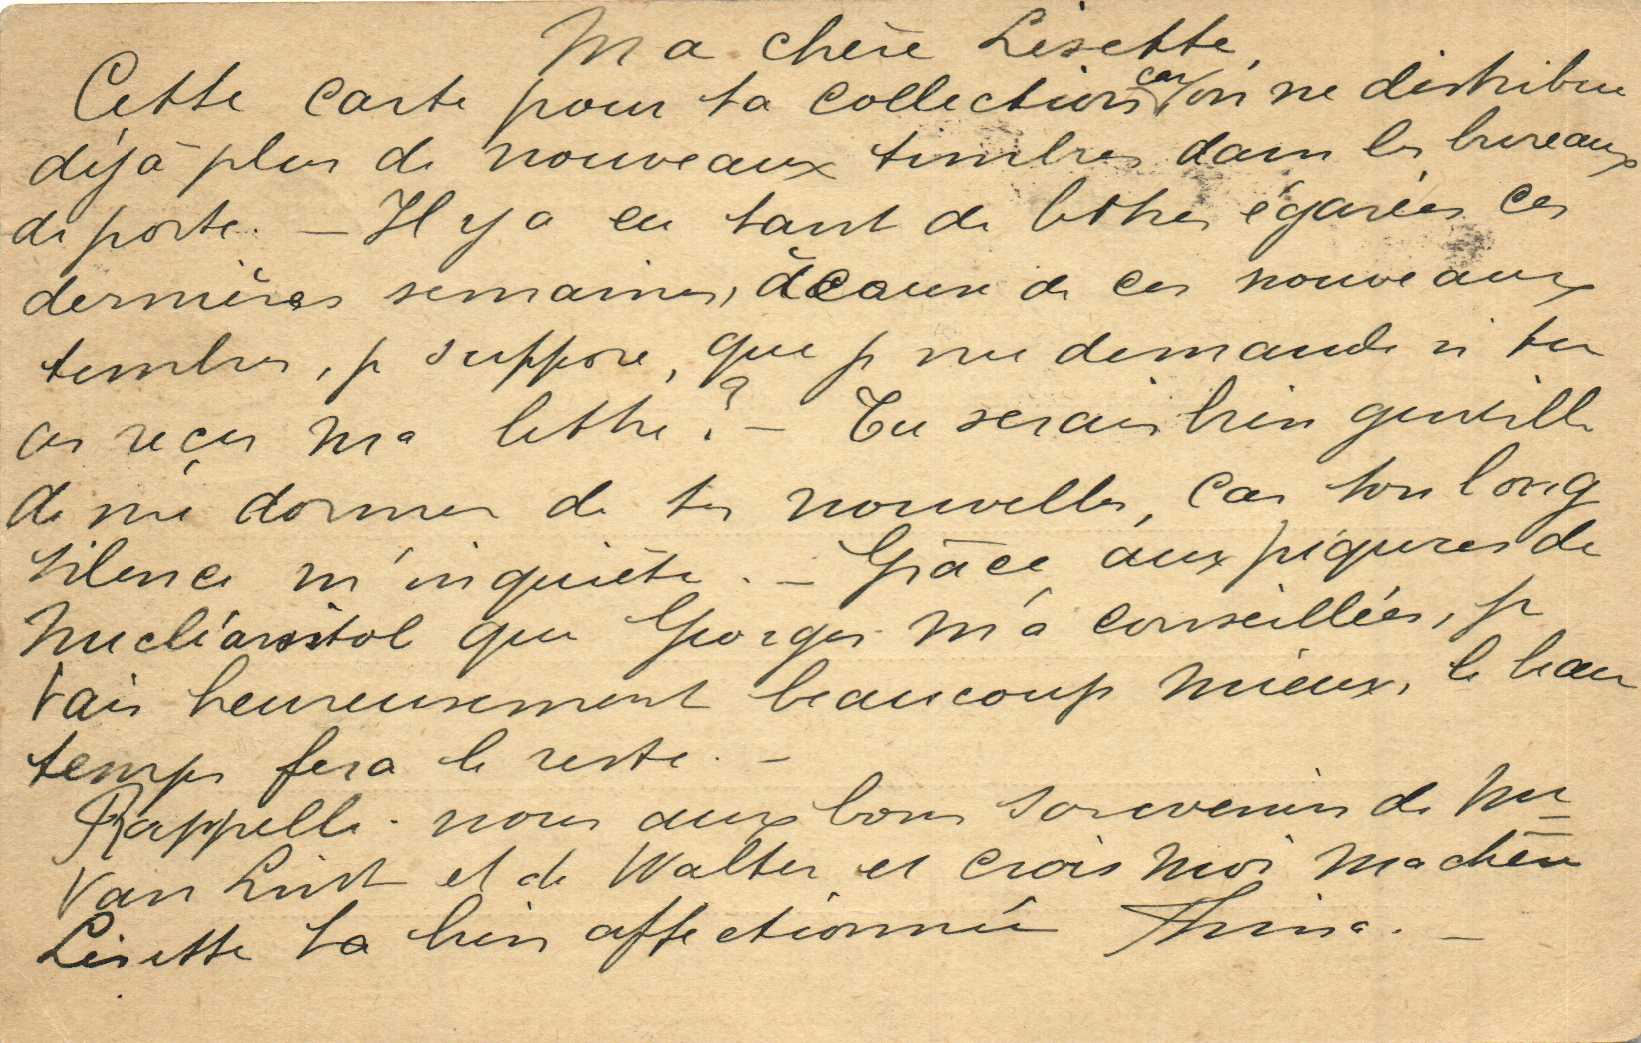 Ma chère Lisette,
Cette carte pour ta collection car on ne distribue
déjà plus de nouveaux timbres dans les bureaux
de poste. — Il y a eu tant de lettres égarées ces
dernières semaines, à cause de ces nouveaux
timbres, je suppose, que je me demande si tu
as reçu ma lettre ? — Tu serais bien gentille
de me donner de tes nouvelles, car ton long
silence m'inquiète. — Grâce aux piqûres de
que Georges m'a conseillées, je
vais heureusement beaucoup mieux, le beau
temps fera le reste. —
Rappelle-nous aux bons souvenirs de
Van et de Walter et crois moi ma chère
Lisette ta bien affectionnée